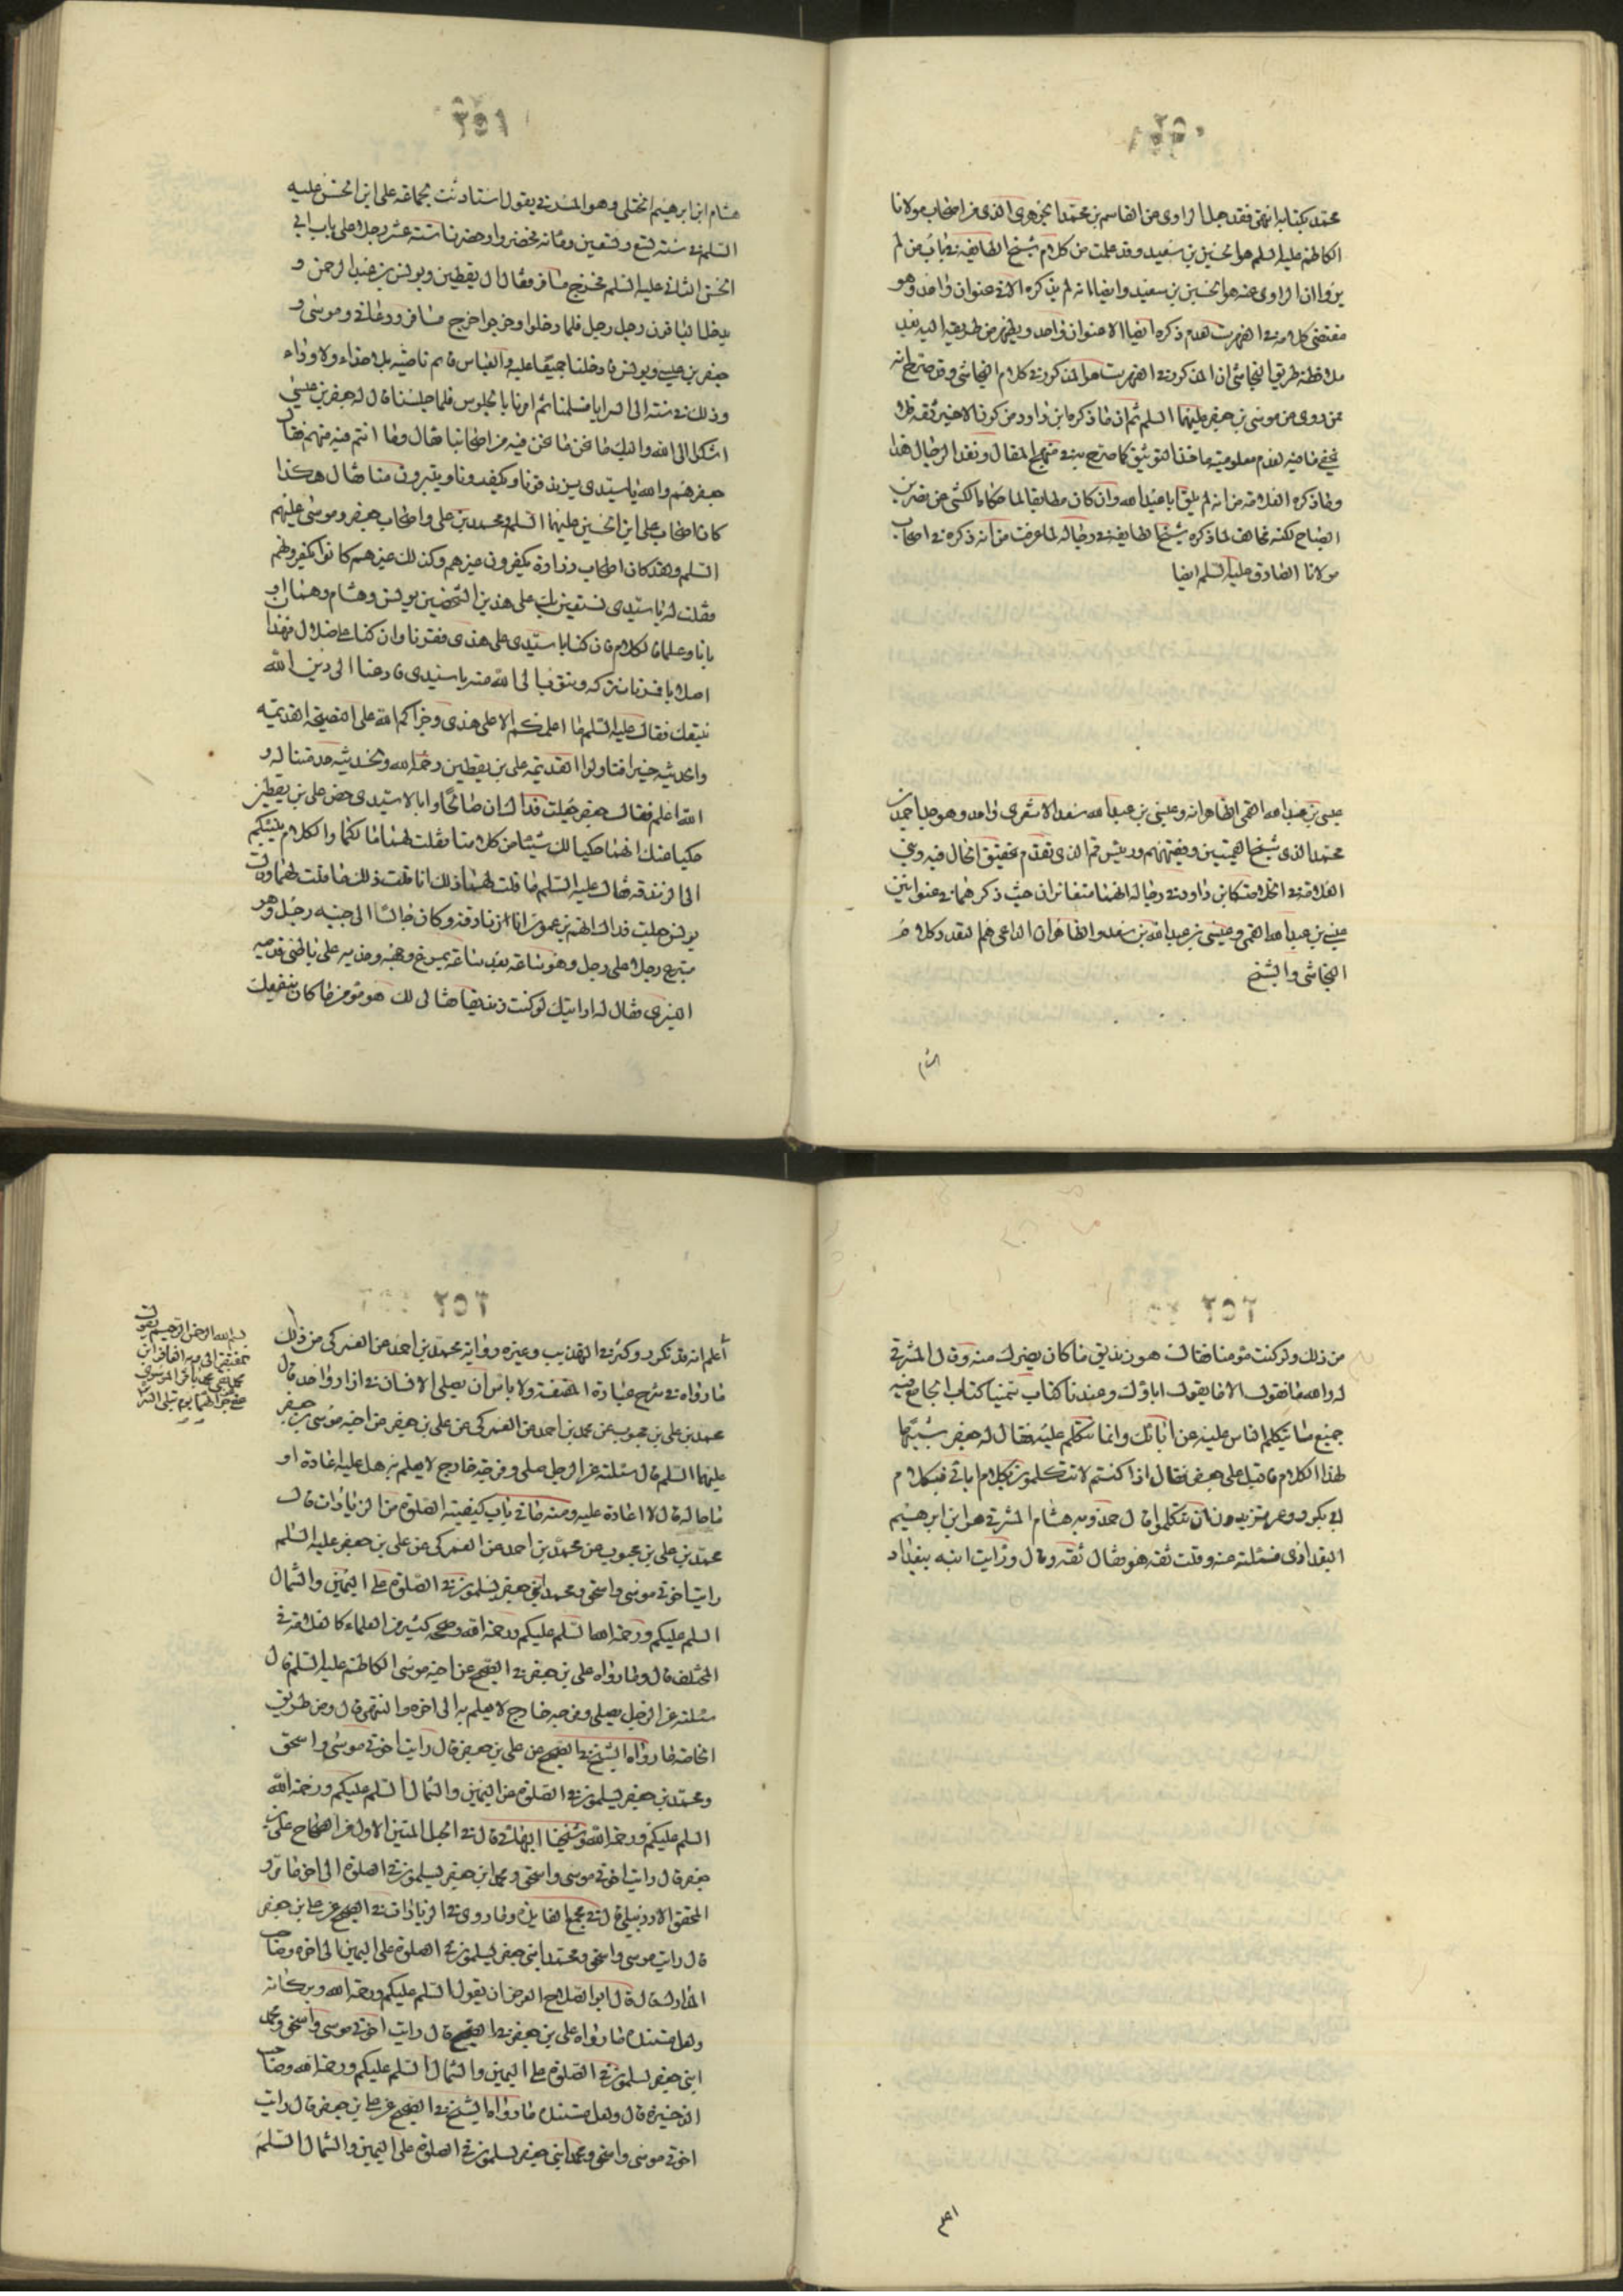 ٢٥٠
محمد بكتابه انتهى فقد جعل الراوى عن القاسم بن محمد الجوهرى الذى من اصحاب مولانا
الكاظم عليه السلم هو الحسين بن سعيد وقد علمت من كلام شيخ الطايفه فى باب من لم
يرو ان الراوى عنه هو الحسين بن سعيد وايضا انه لم يذكره الا فى عنوان واحد وهو
مقتضى كلامه فى الفهرست لعدم ذكره ايضا الا عنوان واحد ويظهر من طريقه اليه بعد
ملاحظة طريق النجاشى ان المذكور فى الفهرست هو المذكور فى كلام النجاشى وقد صرح بانه
ممن روى عن موسى بن جعفر عليهما السلم ثم ان ما ذكره ابن داود من كون الاخير ثقه فلا
يخفى ما فيه لعدم معلومية ماخذ التوثيق كما صرح به فى منهج المقال ونقد الرجال هذا
وما ذكره العلامه من انه لم يلق ابا عبد الله وان كان مطابقا لما حكاه الكشى عن نصر بن
الصباح لكنه مخالف لما ذكره شيخ الطايفه فى رجاله لما عرفت من انه ذكره فى اصحاب
مولانا الصادق عليه السلم ايضا
عيسى بن عبد الله القمى الظاهر انه وعيسى بن عبد الله سعد الاشعرى واحد وهو جد احمد بن
محمد الذى شيخ القميين وفقيههم ورئيس قم الذى تقدم تحقيق الحال فيه وعن
العلامه فى الخلاصه كابن داود فى رجاله انهما متغايران حيث ذكرهما فى عنوانين
عيسى بن عبد الله القمى وعيسى بن عبد الله بن سعد والظاهر ان الداعى لهم تعدد كلام
النجاشى والشيخ
هشام
٢٥١
هشام ابن ابرهيم الختلى وهو المشرقى يقول استاذنت لجماعه على ابى الحسن عليه
السلم فى سنة تسع وتسعين ومائه فحضروا وحضرنا ستة عشر رجلا على باب ابى
الحسن الثانى عليه السلم فخرج مسافر فقال ال يقطين ويونس بن عبد الرحمن و
يدخل الباقون رجل رجل فلما دخلوا وخرجوا خرج مسافر ودعانى وموسى و
جعفر بن عيسى ويونس فادخلنا جميعًا عليه والعباس قائم ناحيه بلا حذاء ولا رداء
وذلك فى سنة ابى السرايا فسلمنا ثم امرنا بالجلوس فلما جلسنا قال له جعفر بن عيسى
اشكو الى الله واليك ما نحن فيه من اصحابنا فقال وما انتم فيه منهم فقال
جعفر هم والله يا سيدى يزندقونا ويكفرونا ويتبرون منا فقال هكذا
كان اصحاب على ابن الحسين عليهما السلم ومحمد بن على واصحاب جعفر وموسى عليهم
السلم ولقد كان اصحاب زرارة يكفرون غيرهم وكذلك غيرهم كانوا يكفرونهم
فقلت له يا سيدى نستعين بك على هذين الشيخين يونس وهشام وهما
بانا وعلمانا الكلام فان كنا يا سيدى على هدى ففزنا وان كنا على ضلال فهذان
اضلانا فمرنا نتركه ونتوب الى الله منه يا سيدى فادعنا الى دين الله
نتبعك فقال عليه السلم ما اعلمكم الا على هدى وجزاكم الله على النصيحة القديمه
والحديثه خيرا فتاولوا القديمه على بن يقطين رحمه الله والحديثه خدمتنا له و
الله اعلم فقال جعفر جعلت فداك ان صالحًا وابا الاسد حض على بن يقطين
حكيا عنك انهما حكيا لك شيئا من كلامنا فقلت لهما ما لكما والكلام يثنيكم
الى الزندقه فقال عليه السلم ما قلت لهما ذلك انا قلت ذلك ما قلت لهما وقال
يونس جعلت فداك انهم يزعمون انا زنادقه وكان جالسًا الى جنبه رجل وهو
متربع رجلا على رجل وهو ساعه بعد ساعه يمرغ وجهه وخديه على باطن قدمه
اليسرى فقال له ارايتك لو كنت زنديقا فقال لك هو مؤمن ما كان ينفعك
٢٥٢
من ذلك ولو كنت مؤمنا فقالت هو زنديق ما كان يضرك منه وقال المشرقى
له والله ما نقول الا ما يقول اباؤك وعندنا كتاب سميناه كتاب الجامع فيه
جميع ما يتكلم الناس عليه عن ابائك وانما نتكلم عليه فقال له جعفر شبيهًا
بهذا الكلام فاقبل على جعفر فقال اذا كنتم لا تتكلمون بكلام ابائى فبكلام
ابى بكر وعمر تريدون ان تتكلموا قال حمدويه هشام المشرقى هو ابن ابرهيم
البغدادى فسئلته عنه وقلت ثقه هو فقال ثقه وقال ورايت ابنه ببغداد
اعلم
٢٥٣
اعلم انه قد تكرر وكثر فى التهذيب وغيره رواية محمد بن احمد عن العمركى من ذلك
ما رواه فى شرح عبارة المقنعة ولا باس ان يصلى الانسان فى ازار واحد قال
محمد بن على بن محبوب عن محمد بن احمد عن العمركى عن على بن جعفر عن اخيه موسى بن جعفر
عليهما السلم قال سئلته عن الرجل صلى وفرجه خارج لا يعلم به هل عليه اعادة او
ما حاله قال لا اعادة عليه ومنه ما فى باب كيفية الصلوة من الزيادات قال
محمد بن على بن محبوب عن محمد بن احمد عن العمركى عن على بن جعفر عليه السلم
رايت اخوتى موسى واسحق ومحمد ابنى جعفر يسلمون فى الصلوة على اليمين والشمال
السلم عليكم ورحمة الله السلم عليكم ورحمة الله وصححه كثير من العلماء كالعلامه فى
المختلف قال وما رواه على بن جعفر فى الصحيح عن اخيه موسى الكاظم عليه السلم قال
سئلته عن الرجل يصلى وفرجه خارج لا يعلم به الى اخره وانتهى قال ومن طريق
الخاصه ما رواه الشيخ فى الصحيح عن على بن جعفر قال رايت اخوتى موسى واسحق
ومحمد بن جعفر يسلمون فى الصلوة عن اليمين والشمال السلم عليكم ورحمة الله
السلم عليكم ورحمة الله وشيخنا البهائى قال فى الحبل المتين الاول من الصحاح على بن
جعفر قال رايت اخوتى موسى واسحق ومحمد ابن جعفر يسلمون فى الصلوة الى اخر ما مر و
المحقق الاردبيلى قال فى مجمع الفايده وما روى فى الزيادات فى الصحيح عن على بن جعفر
قال رايت موسى واسحق ومحمد ابنى جعفر يسلمون فى الصلوة على اليمين الى اخره وصاحب
المدارك قال قال ابو الصلاح الفرض ان يقول السلم عليكم ورحمة الله وبركاته
ولعل مستنده ما رواه على بن جعفر فى الصحيح قال رايت اخوتى موسى واسحق ومحمد
ابنى جعفر يسلمون فى الصلوة على اليمين والشمال السلم عليكم ورحمة الله وصاحب
الذخيرة قال ولعل مستنده ما رواه الشيخ فى الصحيح عن على بن جعفر قال رايت
اخوتى موسى واسحق ومحمد ابنى جعفر يسلمون فى الصلوة على اليمين والشمال السلم
بسم الله الرحمن الرحيم يقول
المفتقر الى ربه الغافر ابن
محمد نقى محمد باقر الموسوى